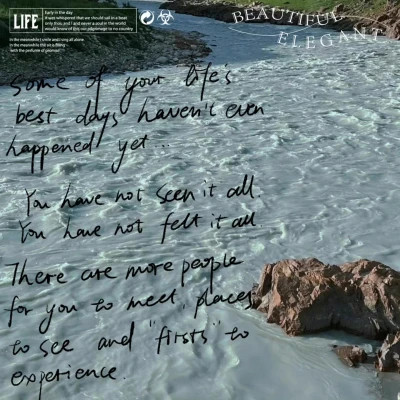 LIFE
Early in the day
it was whispered that we should sail in a boat
only thou and I and never a soul in the world
would know of this our pilgrimage to no country
In the meanwhile I smile and I sing all alone
In the meanwhile the air is filling
with the perfume of promise
BEAUTIFUL
ELEGANT
Some of your life's
best days haven't even
happened yet...
You have not seen it all.
You have not felt it all
There are more people
for you to meet, places
to see and "firsts" to
experience.